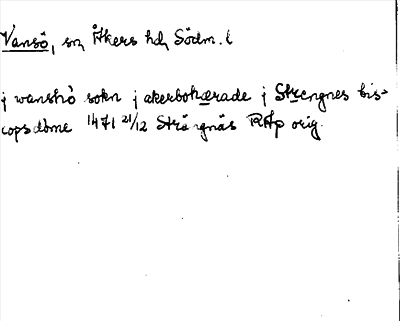 Vansö, sn Åkers hd, Södm. l
j wanshö sokn j akerbohærade j Strengnes bis-
copsdöme 1471 21/12 Strängnäs RAp orig.